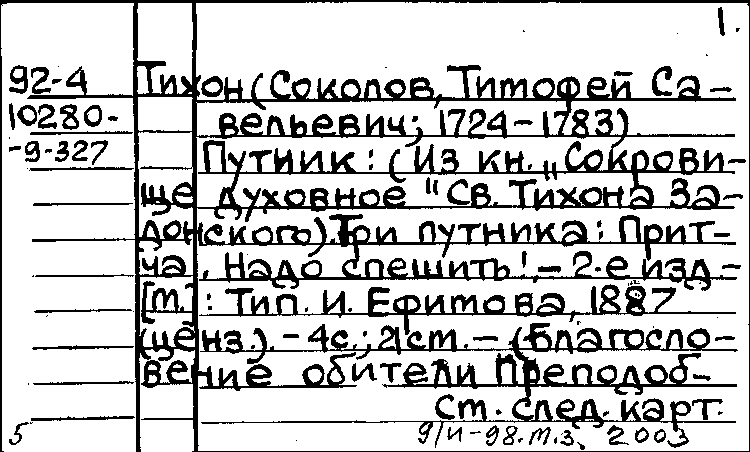 1.
92-4 Тихон (Соколов, Тимофей Са-
10280- вельевич; 1724-1783)
-9-327 Путник: (Из кн. „Сокрови-
ще духовное" Св. Тихона За-
донского). Три путника: Прит-
ча, Надо спешить! - 2-е изд -
[м.]: Тип. И. Ефимова, 1887
(ценз.). - 4с.; 21см. - (Благосло-
вение обители Преподоб-
См. след. карт.
5 9/И-98.М.З. 2003